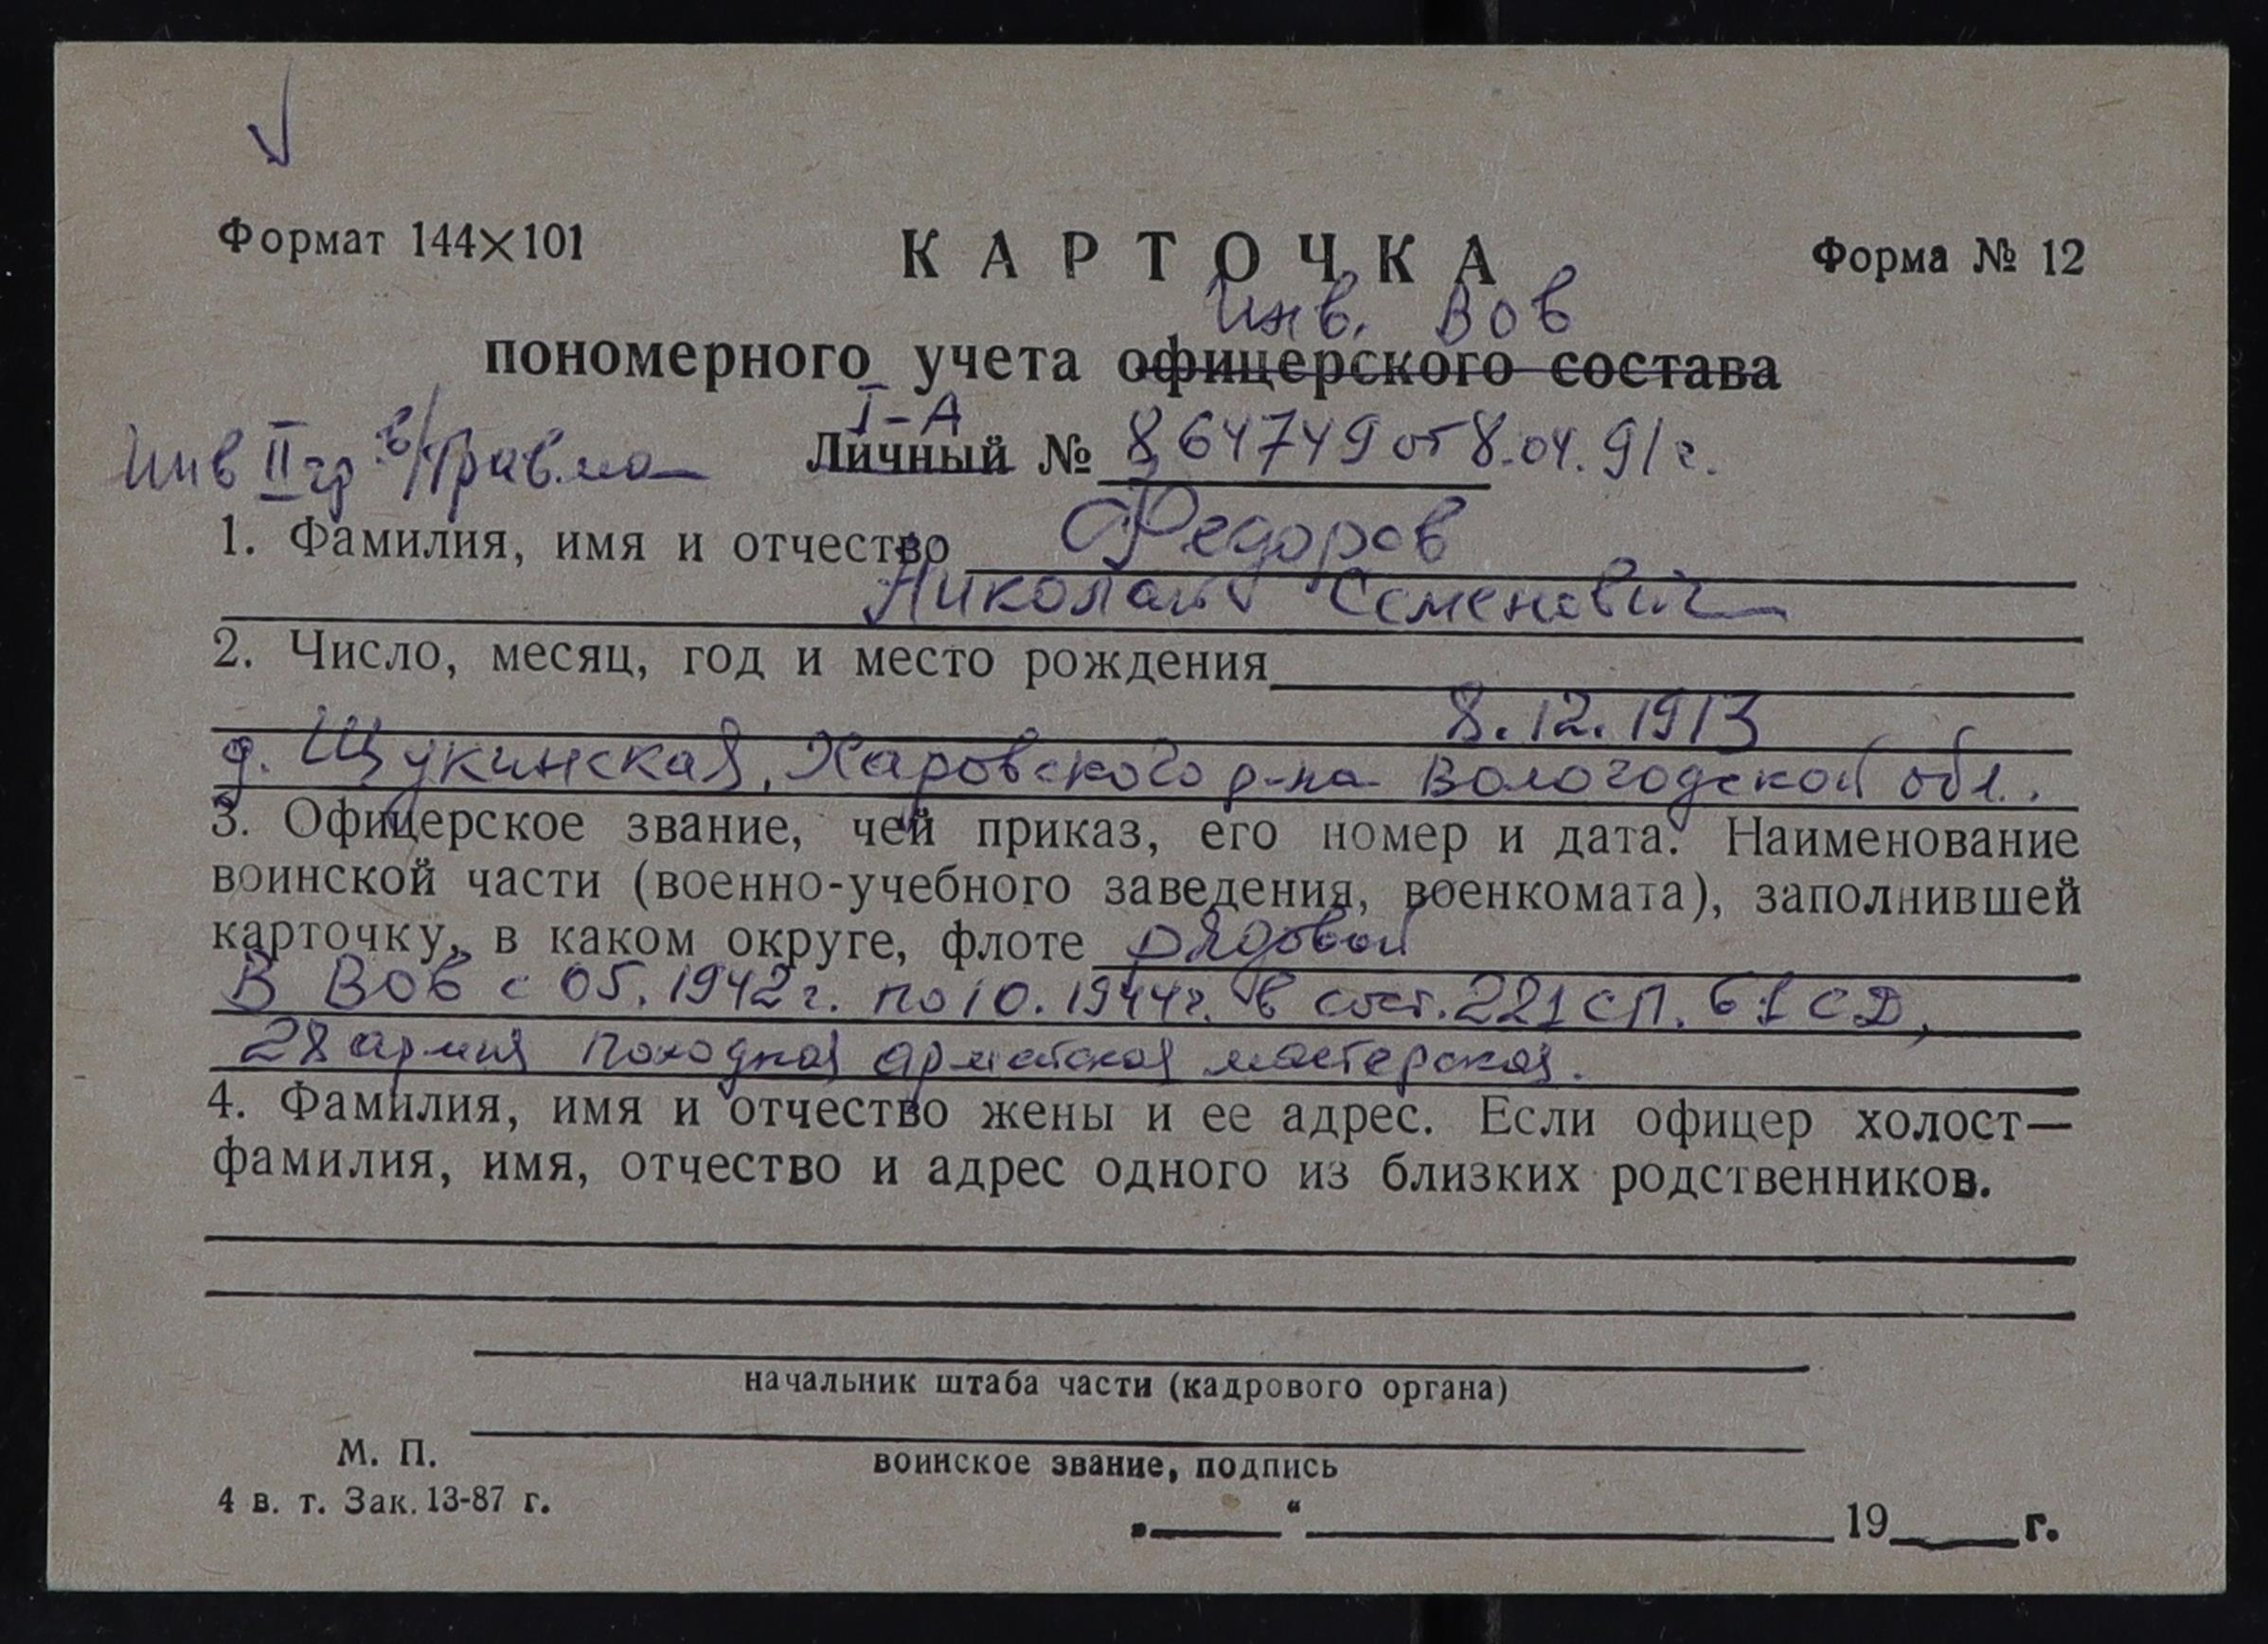 Формат 144×101
КАРТОЧКА
Форма № 12
Инв. ВОв
пономерного учета офицерского состава
I-А
Инв II гр в/травма
Личный № 864749 от 8.04.91 г.
1. Фамилия, имя и отчество Федоров
Николай Семенович
2. Число, месяц, год и место рождения
8.12.1913
д. Щукинская, Харовского р-на Вологодской обл.
3. Офицерское звание, чей приказ, его номер и дата. Наименование
воинской части (военно-учебного заведения, военкомата), заполнившей
карточку, в каком округе, флоте рядовой
В ВОв с 05.1942 г. по 10.1944 г. в сост. 221 СП. 61 СД,
28 армия походная армейская мастерская.
4. Фамилия, имя и отчество жены и ее адрес. Если офицер холост—
фамилия, имя, отчество и адрес одного из близких родственников.
начальник штаба части (кадрового органа)
М. П.
воинское звание, подпись
4 в. т. Зак. 13-87 г.
„___“ ______ 19___г.